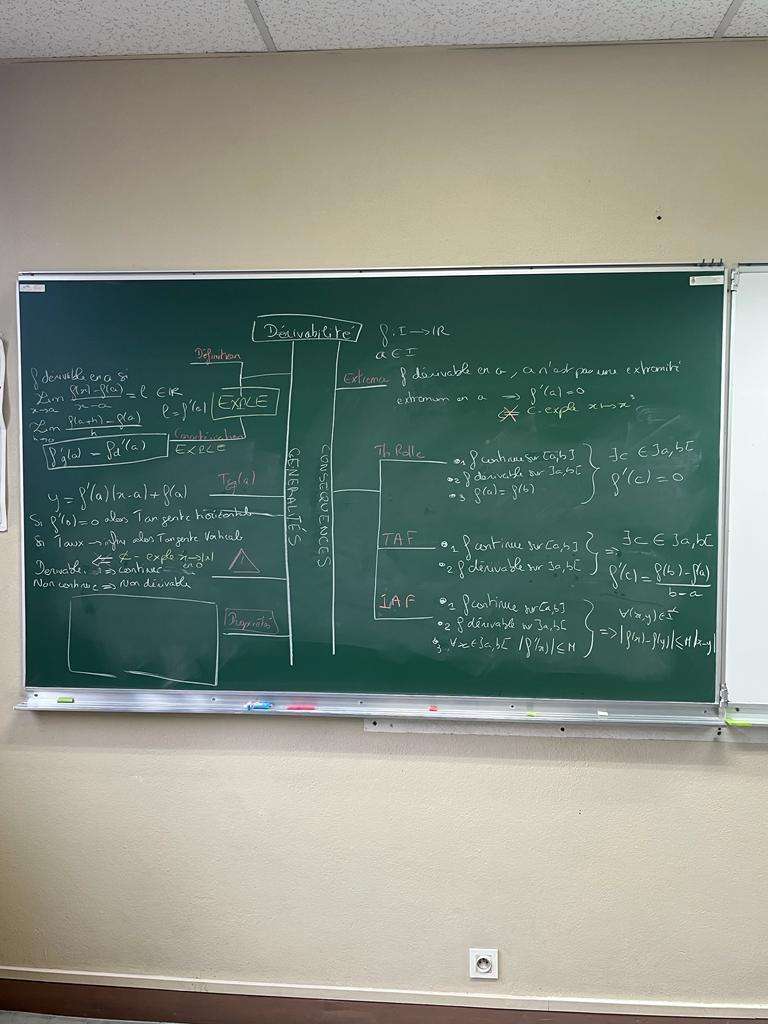 Dérivabilité
f: I → IR
a ∈ I
GENERALITÉS
Définition
f dérivable en a si
Lim x→a (f(x) - f(a))/(x - a) = ℓ ∈ IR
Lim h→0 (f(a+h) - f(a))/h
ℓ = f'(a)
EXPLE
Caractérisation
EXPLE
f'g(a) = f'd(a)
Tg(a)
y = f'(a)(x-a) + f(a)
Si f'(a) = 0 alors Tangente horizontale
Si Taux → infini alors Tangente Vertical
!
⇍ c-exple x→|x| en 0
Dérivable ⇒ continue
Non continue ⇒ Non dérivable
Propriétés
CONSEQUENCES
Extrema
f dérivable en a, a n'est pas une extrémité
extremum en a ⇒ f'(a) = 0
⇍ c-exple x→x³
Th Rolle
•1 f continue sur [a,b]
•2 f dérivable sur ]a,b[
•3 f(a) = f(b)
∃c ∈ ]a,b[
f'(c) = 0
TAF
•1 f continue sur [a,b]
•2 f dérivable sur ]a,b[
⇒ ∃c ∈ ]a,b[
f'(c) = (f(b) - f(a))/(b - a)
IAF
•1 f continue sur [a,b]
•2 f dérivable sur ]a,b[
•3 ∀x ∈ ]a,b[ |f'(x)| ≤ M
∀(x,y) ∈ I²
⇒ |f(x) - f(y)| ≤ M|x-y|